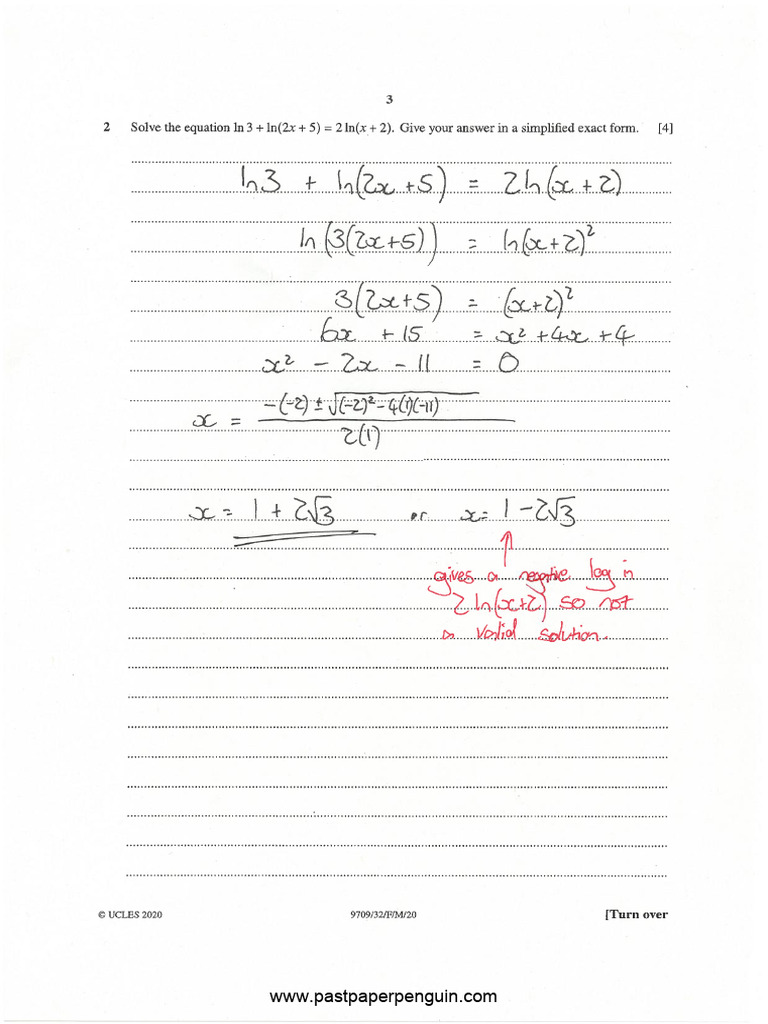 3
2 Solve the equation ln 3 + ln(2x + 5) = 2 ln(x + 2). Give your answer in a simplified exact form. [4]
ln3 + ln(2x+5) = 2ln(x+2)
ln(3(2x+5)) = ln(x+2)²
3(2x+5) = (x+2)²
6x + 15 = x² + 4x + 4
x² - 2x - 11 = 0
x = (-(-2) ± √((-2)² - 4(1)(-11))) / 2(1)
x = 1 + 2√3 or x = 1 - 2√3
gives a negative log in
2 ln(x+2) so not
a valid solution.
© UCLES 2020 9709/32/F/M/20 [Turn over
www.pastpaperpenguin.com